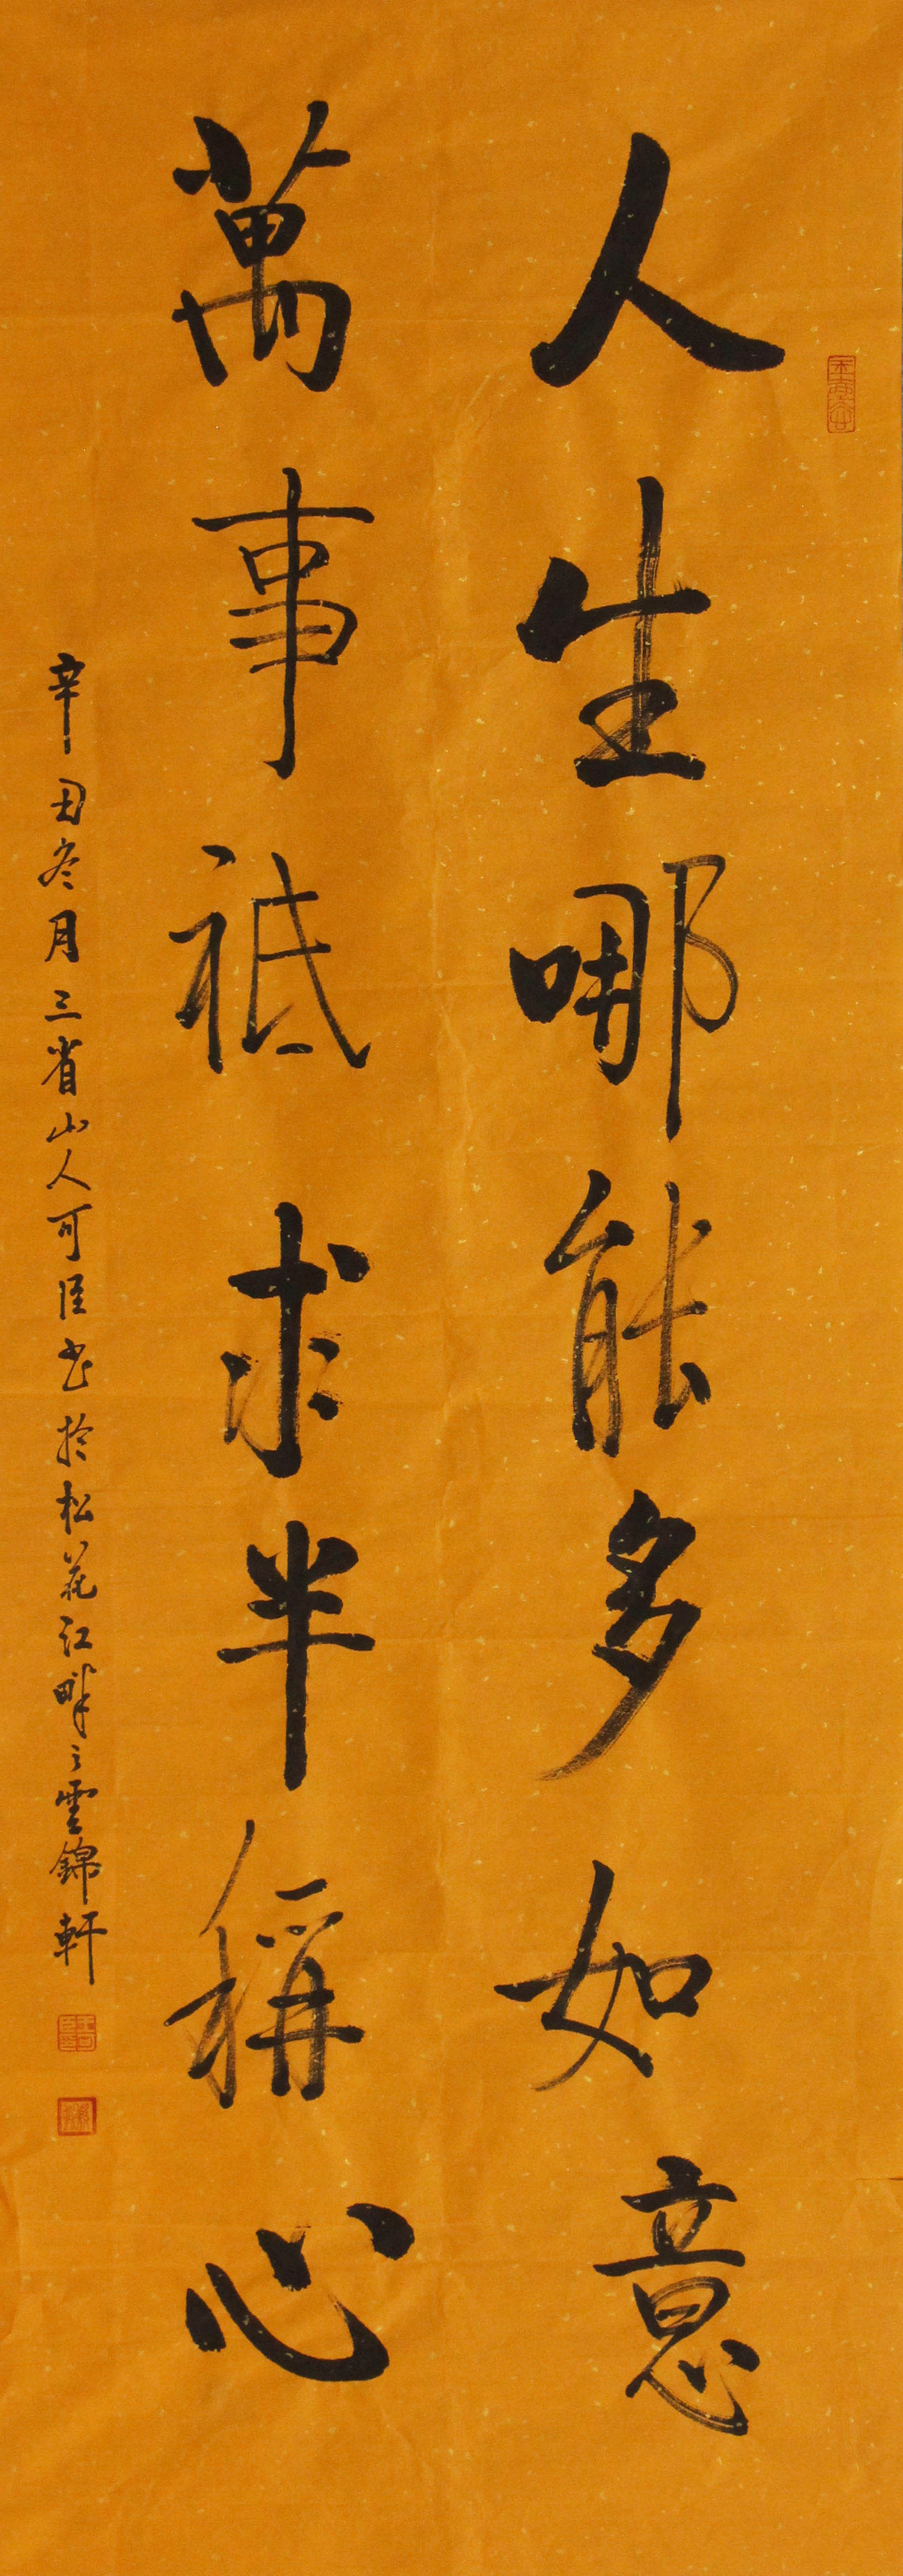 人生哪能多如意
萬事祗求半稱心
辛丑冬月三省山人可臣书於松花江畔之雲錦軒